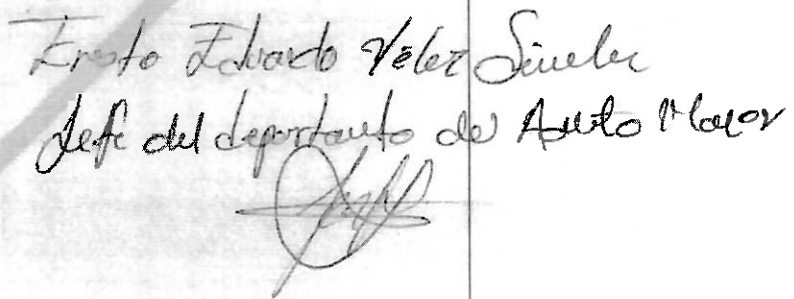 Ernesto Eduardo Vélez Sánchez
Jefe del departamento de Adulto Mayor